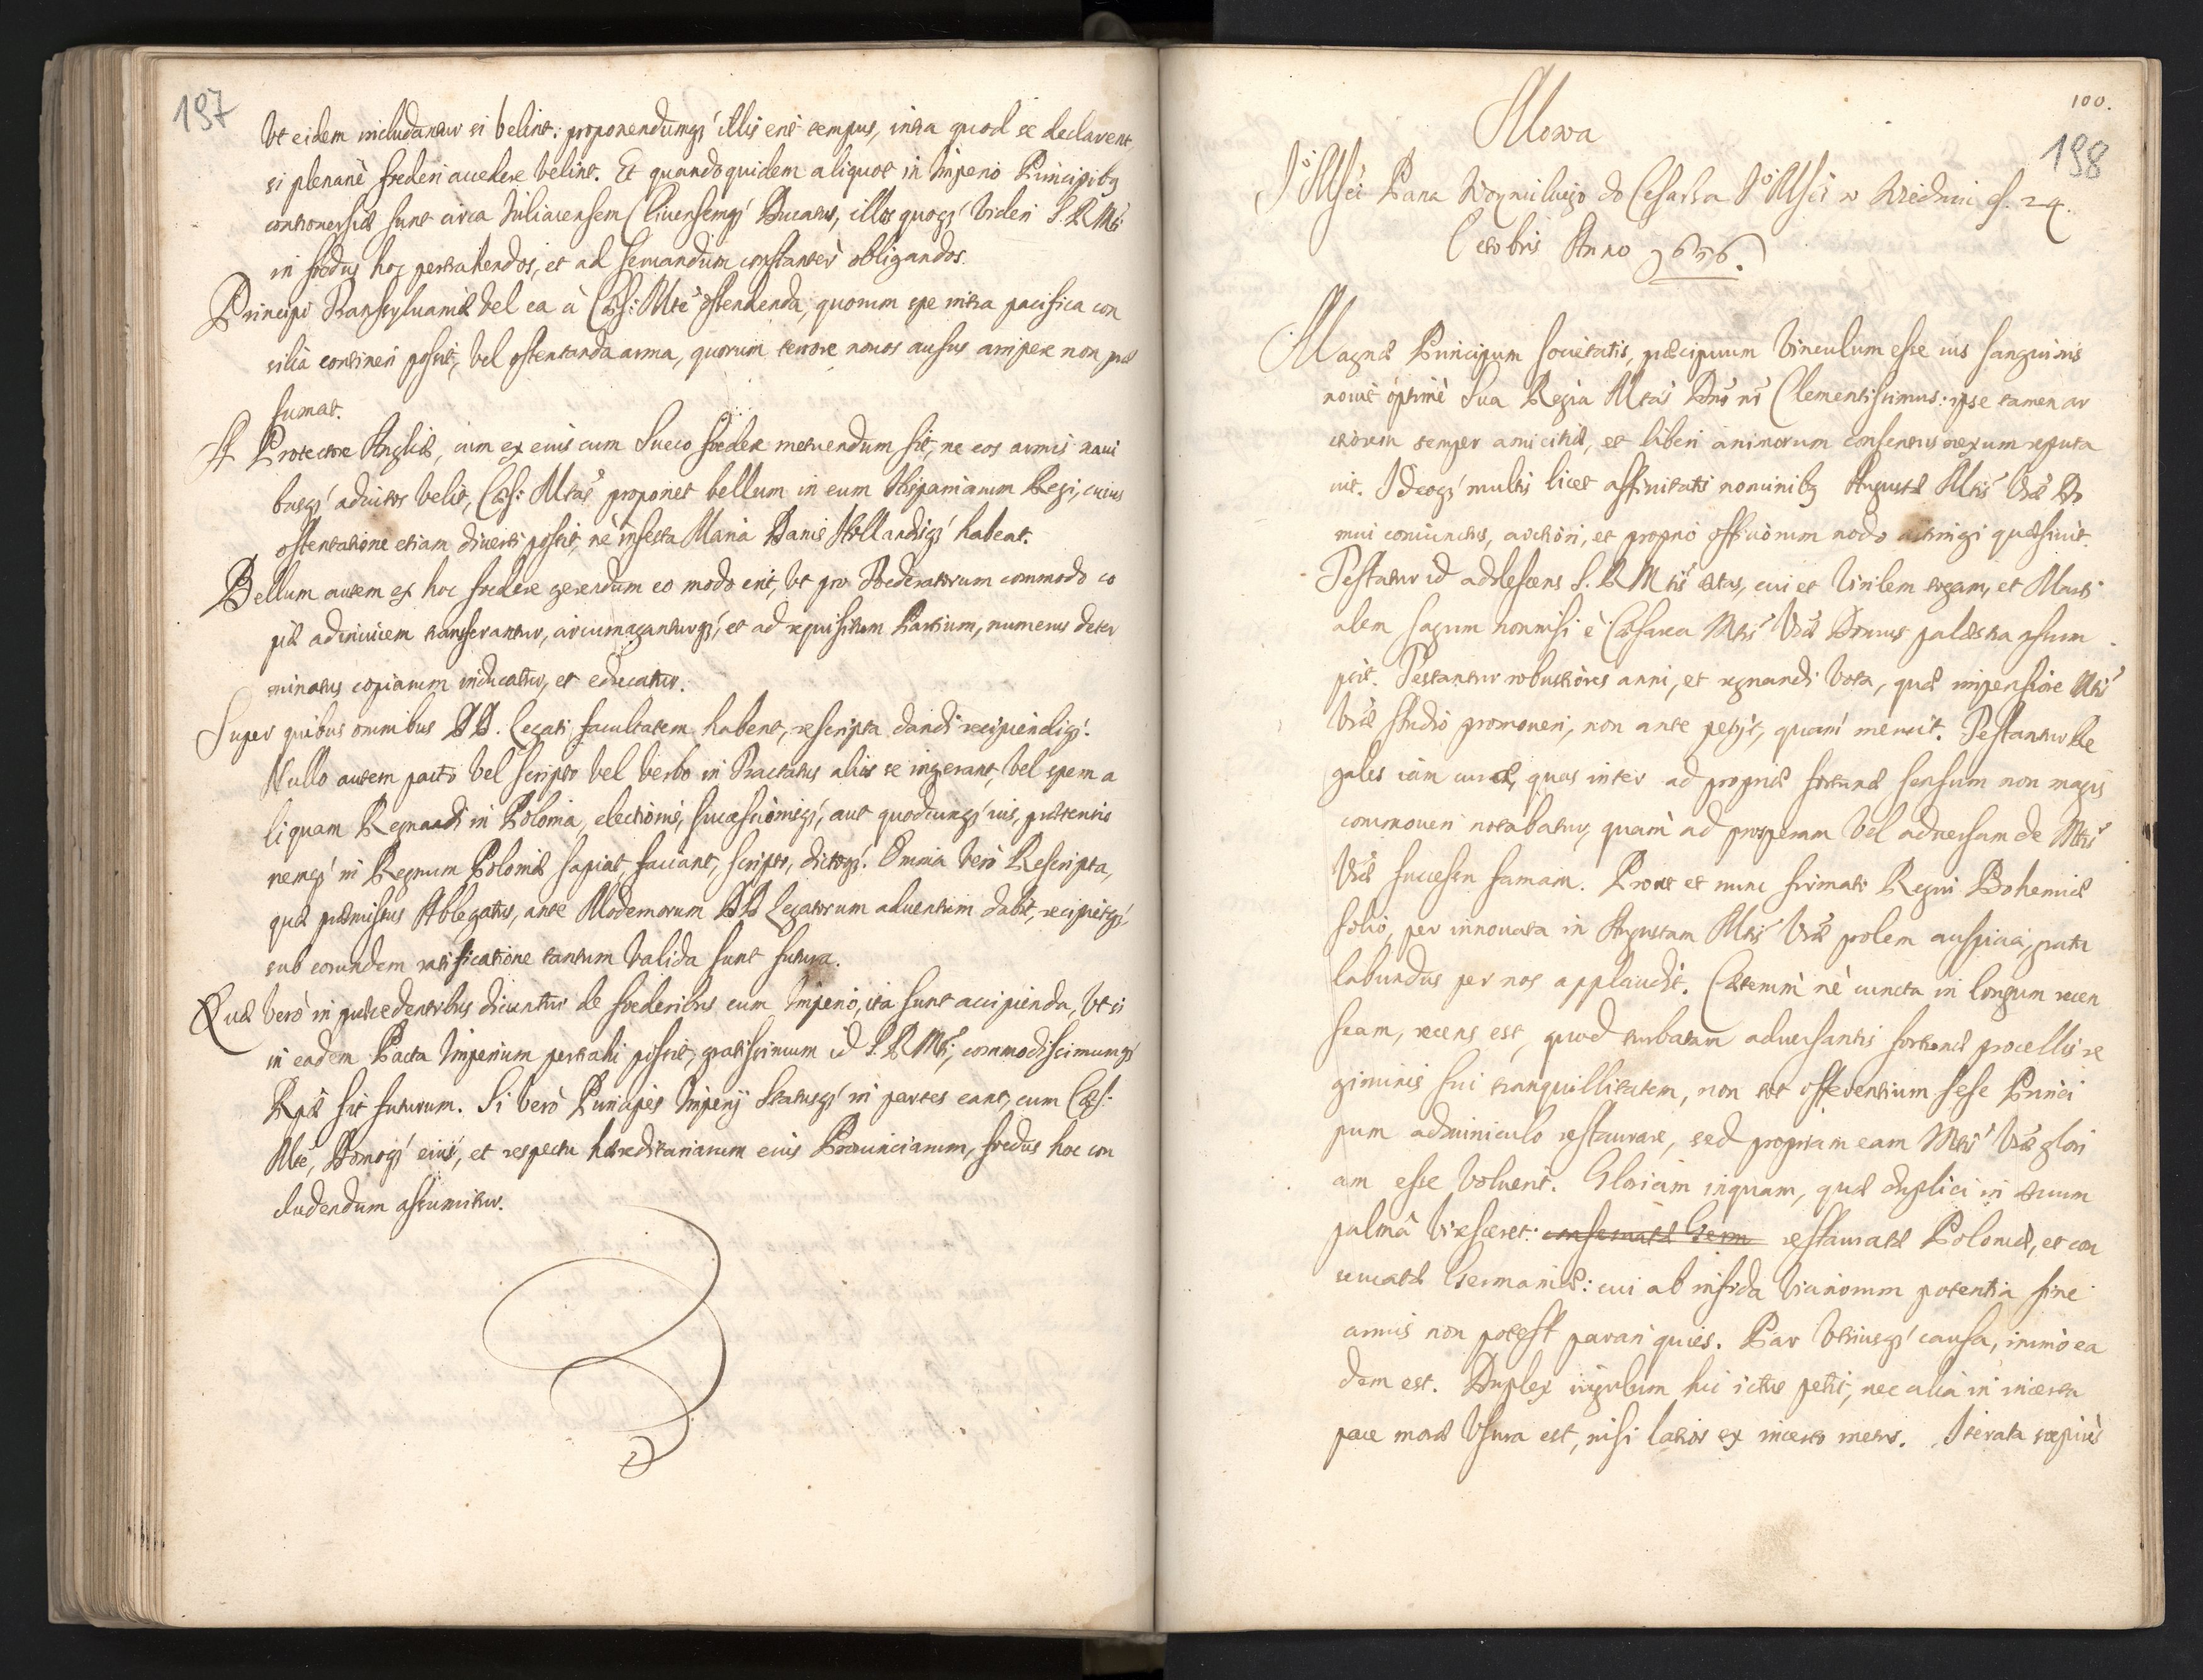 197
Vt eidem includantur si velint: proponendumq́ illis erit tempus, intra quod se declarent,
si plenariè foederi accedere velint. Et quandoquidem aliquot in Imperio Principibq
controuersiæ sunt circa Iuliacensem Cliuensemq́ Ducatus, illos quoq́ videri S. R. Mti
in foedus hoc pertrahendos, et ad seruandum constanter obligandos.
Principi Transyluaniæ vel ea à Cæs: Mte ostendenda, quorum spe intra pacifica con
silia contineri possit, vel ostentanda arma, quorum terrore nouos ausus arripere non præ
sumat.
A Protectore Angliæ, cum ex eius cum Sueco foedere metuendum sit, ne eos armis naui
busq́ adiutos velit, Cæs: Mtas proponet bellum in eum Hispaniarum Regi, cuius
ostentatione etiam diuerti possit, nè infesta Maria Danis Hollandisq́ habeat.
Bellum autem ex hoc foedere gerendum eo modo erit, vt pro Foederatorum commodo co
piæ adinuicem transferantur, circumagantturq́, et ad requisitum Partium, numerus deter
minatus copiarum inducatur, et educatur.
Super quibus omnibus DD. Legati facultatem habent, rescripta dandi recipiendiq́.
Nullo autem pacto vel scripto vel verbo in Tractatus alios se ingerant, vel spem a
liquam Regnandi in Polonia, electionis, successionisq́, aut quodcunq́ ius, prætensio
nemq́ in Regnum Poloniæ sapiat, faciant, scripto, dictoq́. Omnia verò Rescripta,
quæ præmissus Ablegatus, ante Modernorum DD Legatorum aduentum dabit, recipietq́
sub eorundem ratificatione tantum valida sunt futura.
Quæ verò in præcedentibus dicuntur de foederibus cum Imperio, ita sunt accipienda, Vt si
in eadem Pacta Imperium pertrahi possit, gratissimum id S. R. Mti, commodissimumq́
Rpæ sit futurum. Si verò Principes Imperij Statusq́ in partes eant, cum Cæs:
Mte, Domoq́ eius, et respectu hæreditariarum eius Prouinciarum, foedus hoc con
cludendum assumitur.
100.
198
Mowa
Jo Msci Pana Woyniłłuiego do Cesarza Jo Msci w Wiedniu d. 24.
Octobris Anno 1656.
Magnæ Principum societatis, præcipuum vinculum esse ius sanguinis
nouit optimè Sua Regia Mtas Dns ns Clementissimus: ipse tamen ar
ctiorem semper amicitiæ, et liberi animorum consensus nexum reputa
uit. Ideoq́ multis licet affinitatis nominibq Augustæ Mtis Vræ Do
mui coniunctus, arctiori, et proprio officiorum nodo astringi quæsiuit.
Testatur id adolescens S. R. Mtis ætas, cui et Virilem togam, et Marti
alem sagum nonnisi è Cæsarea Mtis Vræ Domus palæstra assum
psit. Testantur robustiores anni, et regnandi vota, quæ impensiore Mtis
Vræ studio promoueri, non ante petijt, quam meruit. Testantur Re
gales iam curæ, quas inter ad propriæ fortunæ sensum non magis
commoueri notabatur, quam ad prosperam vel aduersam de Mtis
Vræ successu famam. Prout et nunc firmato Regni Bohemiæ
solio, per innouata in Augustam Mtis Vræ prolem auspicia, gratu
labundus per nos applaudit. Cæterum nè cuncta in longum recen
seam, recens est, quod turbatam aduersantis fortunæ procellis re
giminis sui tranquillitatem, non tot offerentium sese Princi
pum adminiculo restaurare, sed propriam eam Mtis Vræ glori
am esse voluerit. Gloriam inquam, quæ duplici in æuum
palmâ viresceret: conseruatæ Germ restauratæ Poloniæ, et con
seruatæ Germaniæ: cui ab infida vicinorum potentia sine
armis non potest parari quies. Par vtriusq́ causa, immo ea
dem est. Duplex iugulum hic ictus petit, nec alia in incerta
pace moræ vsura est, nisi latior ex incerto metus. Iterata sæpius